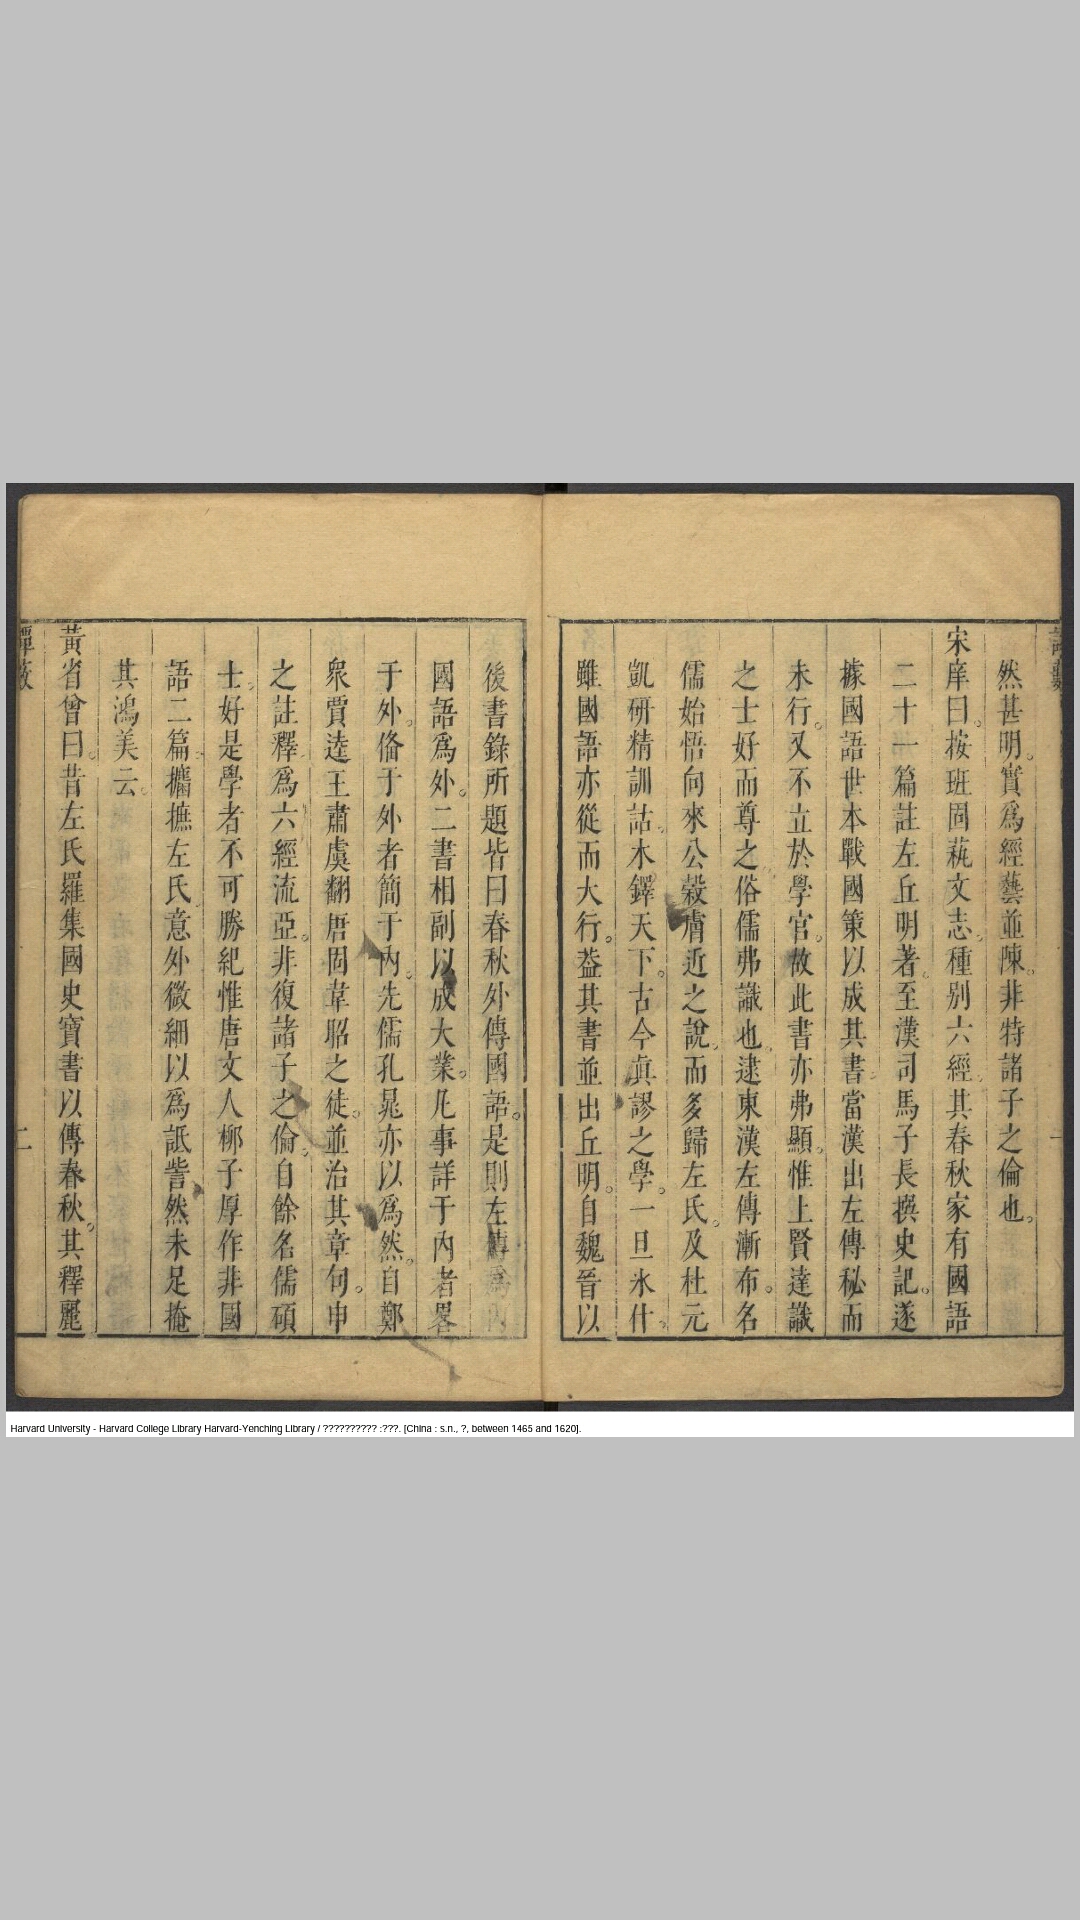 然甚明。實爲經藝並陳。非特諸子之倫也。
宋庠曰。按班固蓺文志。種别六經。其春秋家有國語
二十一篇註左丘明著。至漢司馬子長撰史記。遂
據國語世本戰國策以成其書。當漢出左傳秘而
未行。又不立於學官。故此書亦弗顯。惟上賢達識
之士好而尊之。俗儒弗識也。逮東漢左傳漸布。名
儒始悟向來公榖膚近之說。而多歸左氏。及杜元
凱研精訓詁。木鐸天下。古今眞謬之學。一旦氷什。
雖國語亦從而大行。葢其書並出丘明。自魏晉以
後書錄所題皆曰春秋外傳國語。是則左傳爲内
國語爲外。二書相副以成大業。凡事詳于内者畧
于外。俻于外者簡于内。先儒孔晁亦以爲然。自鄭
衆賈逵王肅虞翻唐固韋昭之徒。並治其章句。申
之註釋。爲六經流亞。非復諸子之倫。自餘名儒碩
士。好是學者不可勝紀惟唐文人柳子厚作非國
語二篇。攟摭左氏。意外微細以爲詆訾然未足掩
其鴻美云。
黃省曾曰。昔左氏羅集國史寶書以傳春秋。其釋麗
二
Harvard University - Harvard College Library Harvard-Yenching Library / ?????????? :???. [China : s.n., ?, between 1465 and 1620].